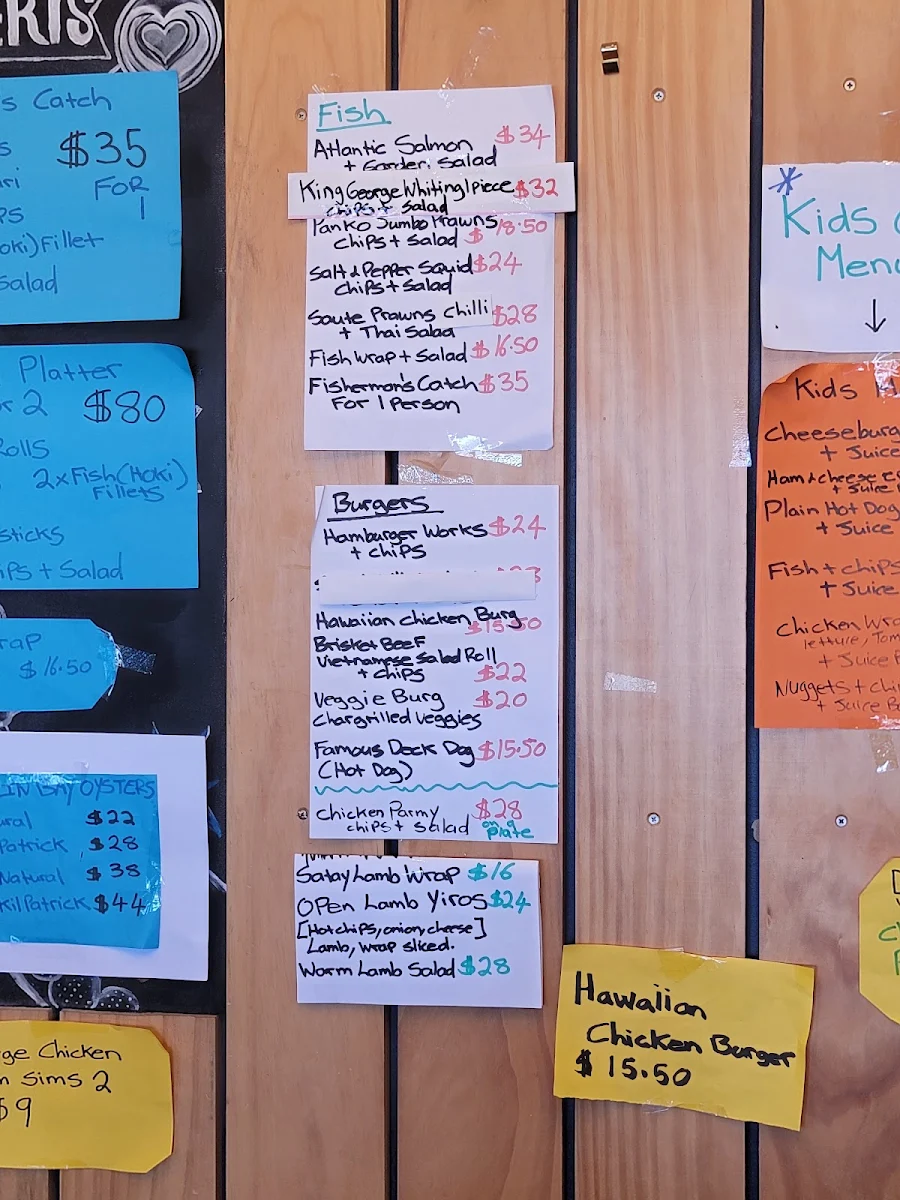 ERTS
s Catch
$35
FOR
1
ri
PS
oki) Fillet
Salad
Platter
or 2 $80
Rolls
2xFish(Hoki)
Fillets
sticks
iPS + Salad
rap
$16.50
IN BAY OYSTERS
ural $22
Patrick $28
Natural $38
Kilpatrick $44
ge Chicken
m Sims 2
$9
Fish
Atlantic Salmon $34
+ Garden Salad
King George Whiting 1 piece $32
chips + Salad
Panko Jumbo Prawns
chips + Salad $18.50
Salt & Pepper Squid $24
chips + Salad
Saute Prawns Chilli $28
+ Thai Salad
Fish wrap + Salad $16.50
Fisherman's Catch $35
For 1 Person
Burgers
Hamburger Works $24
+ chips
Hawaiian chicken Burg
$15.50
Brisket Beef
Vietnamese Salad Roll
+ chips $22
Veggie Burg $20
Chargrilled Veggies
Famous Deck Dog $15.50
(Hot Dog)
Chicken Parmy $28
chips + Salad on Plate
Satay Lamb Wrap $16
Open Lamb Yiros $24
[Hot chips, onion, cheese]
Lamb, wrap sliced.
Warm Lamb Salad $28
Hawaiian
Chicken Burger
$15.50
Kids
Menu
↓
Kids
Cheeseburg
+ Juice
Ham & cheese
+ Juice
Plain Hot Dog
+ Juice
Fish + chips
+ Juice
Chicken Wra
lettuce, Tom
+ Juice
Nuggets + chi
+ Juice